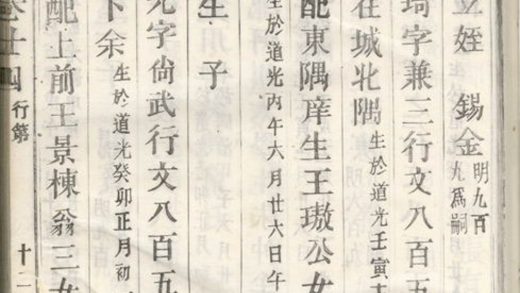 立姪 錫金 明九百
九為嗣
琦字兼三行文八百五
在城北隅 生於道光壬寅
配東隅庠生王璈公女
生於道光丙午六月廿六日午
生 子
字尙武行文八百五
余 生於道光癸卯正月初
配上前王景棟翁三女
卷廿四 行第 十